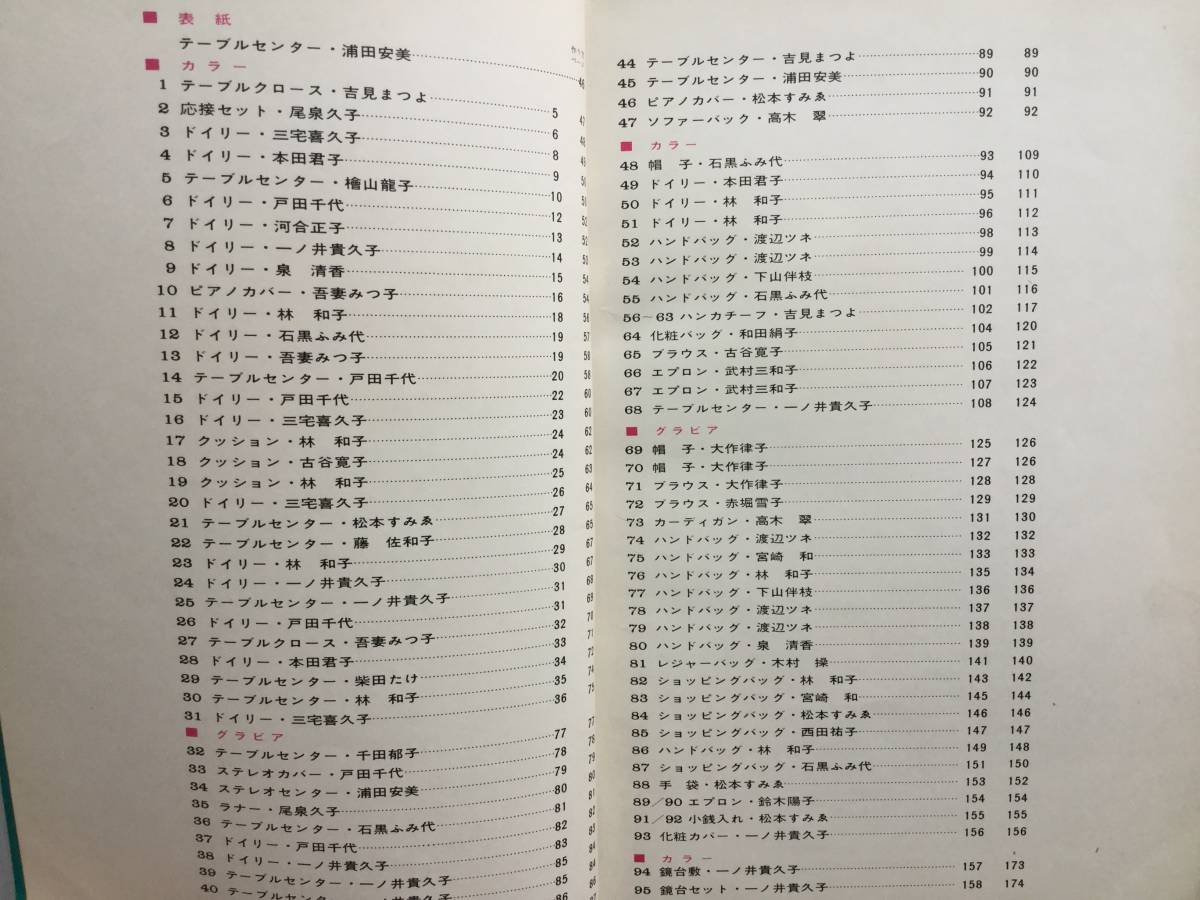 ■ 表紙
テーブルセンター・浦田安美 46
■ カラー
1 テーブルクロース・吉見まつよ 5 47
2 応接セット・尾泉久子 6 48
3 ドイリー・三宅喜久子 8 49
4 ドイリー・本田君子 9 50
5 テーブルセンター・檜山龍子 10
6 ドイリー・戸田千代 12 52
7 ドイリー・河合正子 13 52
8 ドイリー・一ノ井貴久子 14 53
9 ドイリー・泉 清香 15 54
10 ピアノカバー・吾妻みつ子 16 54
11 ドイリー・林 和子 18 56
12 ドイリー・石黒ふみ代 19 57
13 ドイリー・吾妻みつ子 19 58
14 テーブルセンター・戸田千代 20 58
15 ドイリー・戸田千代 22 60
16 ドイリー・三宅喜久子 23 60
17 クッション・林 和子 24 62
18 クッション・古谷寛子 24 62
19 クッション・林 和子 25 63
20 ドイリー・三宅喜久子 26 64
21 テーブルセンター・松本すみゑ 27 65
22 テーブルセンター・藤 佐和子 28 65
23 ドイリー・林 和子 29 67
24 ドイリー・一ノ井貴久子 30 67
25 テーブルセンター・一ノ井貴久子 31 68
26 ドイリー・戸田千代 31 69
27 テーブルクロース・吾妻みつ子 32 70
28 ドイリー・本田君子 33 71
29 テーブルセンター・柴田たけ 34 72
30 テーブルセンター・林 和子 35 74
31 ドイリー・三宅喜久子 36 75
■ グラビア
32 テーブルセンター・千田郁子 77 77
33 ステレオカバー・戸田千代 78 78
34 ステレオセンター・浦田安美 79 79
35 ラナー・尾泉久子 80 80
36 テーブルセンター・石黒ふみ代 81 82
37 ドイリー・戸田千代 82 83
38 ドイリー・一ノ井貴久子 83 84
39 テーブルセンター・一ノ井貴久子 85 84
40 テーブルセンター・一ノ井貴久子 85 86
44 テーブルセンター・吉見まつよ 89 89
45 テーブルセンター・浦田安美 90 90
46 ピアノカバー・松本すみゑ 91 91
47 ソファーバック・高木 翠 92 92
■ カラー
48 帽 子・石黒ふみ代 93 109
49 ドイリー・本田君子 94 110
50 ドイリー・林 和子 95 111
51 ドイリー・林 和子 96 112
52 ハンドバッグ・渡辺ツネ 98 113
53 ハンドバッグ・渡辺ツネ 99 114
54 ハンドバッグ・下山伴枝 100 115
55 ハンドバッグ・石黒ふみ代 101 116
56~63 ハンカチーフ・吉見まつよ 102 117
64 化粧バッグ・和田絹子 104 120
65 ブラウス・古谷寛子 105 121
66 エプロン・武村三和子 106 122
67 エプロン・武村三和子 107 123
68 テーブルセンター・一ノ井貴久子 108 124
■ グラビア
69 帽 子・大作律子 125 126
70 帽 子・大作律子 127 126
71 ブラウス・大作律子 128 128
72 ブラウス・赤堀雪子 129 129
73 カーディガン・高木 翠 131 130
74 ハンドバッグ・渡辺ツネ 132 132
75 ハンドバッグ・宮崎 和 133 133
76 ハンドバッグ・林 和子 135 134
77 ハンドバッグ・下山伴枝 136 136
78 ハンドバッグ・渡辺ツネ 137 137
79 ハンドバッグ・渡辺ツネ 138 138
80 ハンドバッグ・泉 清香 139 139
81 レジャーバッグ・木村 操 141 140
82 ショッピングバッグ・林 和子 143 142
83 ショッピングバッグ・宮崎 和 145 144
84 ショッピングバッグ・松本すみゑ 146 146
85 ショッピングバッグ・西田祐子 147 147
86 ハンドバッグ・林 和子 149 148
87 ショッピングバッグ・石黒ふみ代 151 150
88 手 袋・松本すみゑ 153 152
89/90 エプロン・鈴木陽子 154 154
91/92 小銭入れ・松本すみゑ 155 155
93 化粧カバー・一ノ井貴久子 156 156
■ カラー
94 鏡台敷・一ノ井貴久子 157 173
95 鏡台セット・一ノ井貴久子 158 174